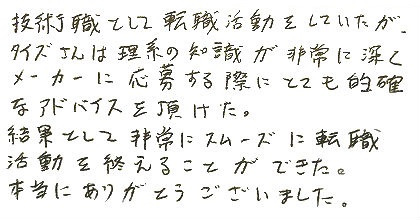 技術職として転職活動をしていたが、
タイズさんは理系の知識が非常に深く
メーカーに応募する際にとても的確
なアドバイスを頂けた。
結果として非常にスムーズに転職
活動を終えることができた。
本当にありがとうございました。